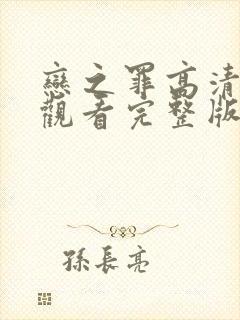 戀之罪高清
觀看完整版
孫長亮